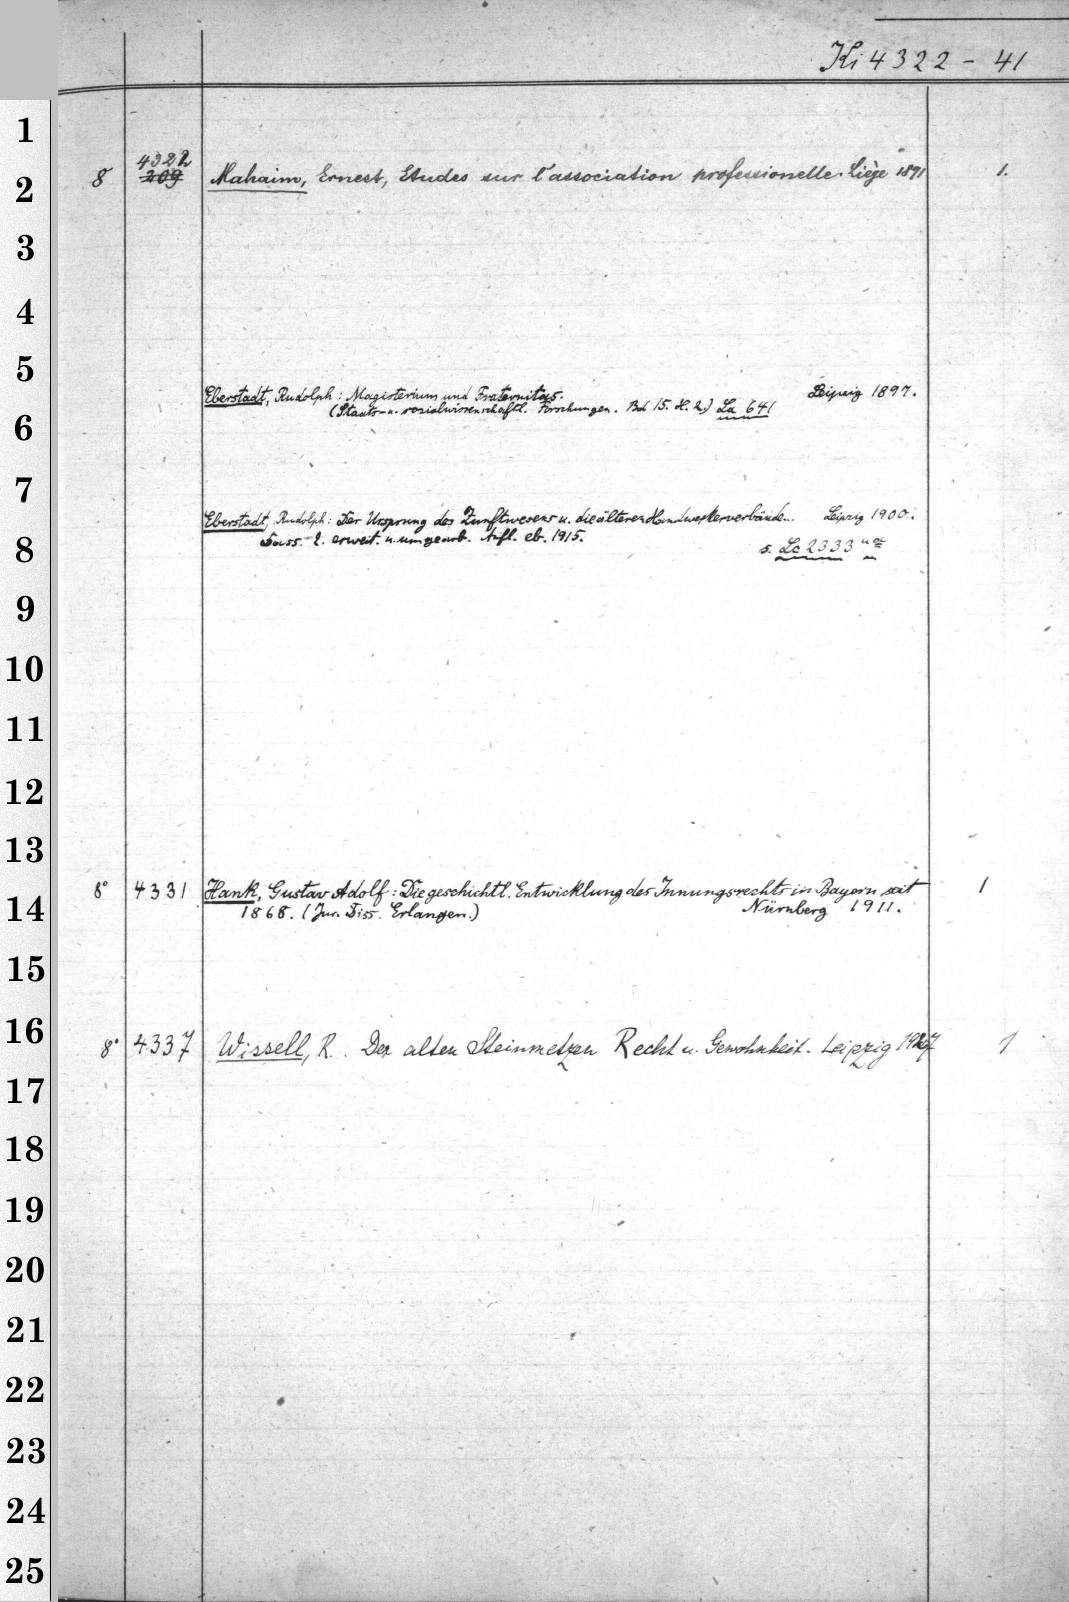 Ki 4322 - 41
1
4322
8 209 Mahaim, Ernest, Etudes sur l'association professionelle. Liège 1891 1.
2
3
4
5
Eberstadt, Rudolph: Magisterium und Fraternitas. Leipzig 1897.
(Staats- u. sozialwissenschaftl. Forschungen. Bd 15. H. 2.) La 641
6
7
Eberstadt, Rudolph: Der Ursprung des Zunftwesens u. die älteren Handwerkerverbände... Leipzig 1900.
Dass. 2. erweit. u. umgearb. Aufl. eb. 1915.
8 s. Lc 2333
9
10
11
12
13
8° 4331 Hank, Gustav Adolf: Die geschichtl. Entwicklung des Innungsrechts in Bayern seit 1
14 1868. (Jur. Diss. Erlangen.) Nürnberg 1911.
15
16
8° 4337 Wissell, R. Der alten Steinmetzen Recht u. Gewohnheit. Leipzig 1927 1
17
18
19
20
21
22
23
24
25